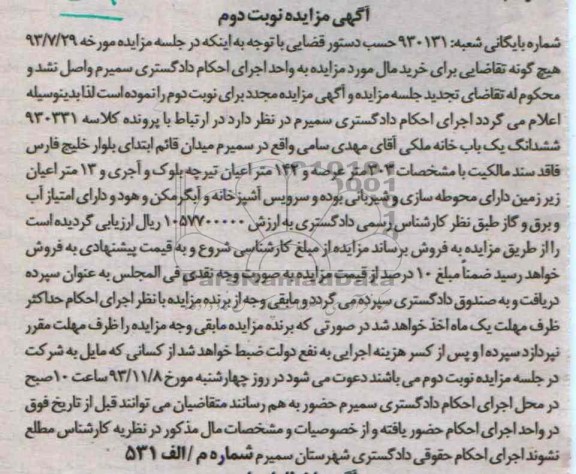 آگهی مزایده نوبت دوم
شماره بایگانی شعبه: ۹۳۰۱۳۱ حسب دستور قضایی با توجه به اینکه در جلسه مزایده مورخه ۹۳/۷/۲۹
هیچ گونه تقاضایی برای خرید مال مورد مزایده به واحد اجرای احکام دادگستری سمیرم واصل نشد و
محکوم له تقاضای تجدید جلسه مزایده و آگهی مزایده مجدد برای نوبت دوم را نموده است لذا بدینوسیله
اعلام می گردد اجرای احکام دادگستری سمیرم در نظر دارد در ارتباط با پرونده کلاسه ۹۳۰۳۳۱
ششدانگ یک باب خانه ملکی آقای مهدی سامی واقع در سمیرم میدان قائم ابتدای بلوار خلیج فارس
فاقد سند مالکیت با مشخصات ۳۰۳ متر عرصه و ۱۴۴ متر اعیان تیرچه بلوک و آجری و ۱۳ متر اعیان
زیر زمین دارای محوطه سازی و شیربانی بوده و سرویس آشپزخانه و آبگرمکن و هود و دارای امتیاز آب
و برق و گاز طبق نظر کارشناس رسمی دادگستری به ارزش ۱۰۵۷۷۰۰۰۰۰ ریال ارزیابی گردیده است
را از طریق مزایده به فروش برساند مزایده از مبلغ کارشناسی شروع و به قیمت پیشنهادی به فروش
خواهد رسید ضمناً مبلغ ۱۰ درصد از قیمت مزایده به صورت وجه نقدی فی المجلس به عنوان سپرده
دریافت و به صندوق دادگستری سپرده می گردد و مابقی وجه از برنده مزایده با نظر اجرای احکام حداکثر
ظرف مهلت یک ماه اخذ خواهد شد در صورتی که برنده مزایده مابقی وجه مزایده را ظرف مهلت مقرر
نپردازد سپرده او پس از کسر هزینه اجرایی به نفع دولت ضبط خواهد شد از کسانی که مایل به شرکت
در جلسه مزایده نوبت دوم می باشند دعوت می شود در روز چهارشنبه مورخ ۹۳/۱۱/۸ ساعت ۱۰ صبح
در محل اجرای احکام دادگستری سمیرم حضور به هم رسانند متقاضیان می توانند قبل از تاریخ فوق
در واحد اجرای احکام حضور یافته و از خصوصیات و مشخصات مال مذکور در نظریه کارشناس مطلع
نشوند اجرای احکام حقوقی دادگستری شهرستان سمیرم شماره م/الف ۵۳۱